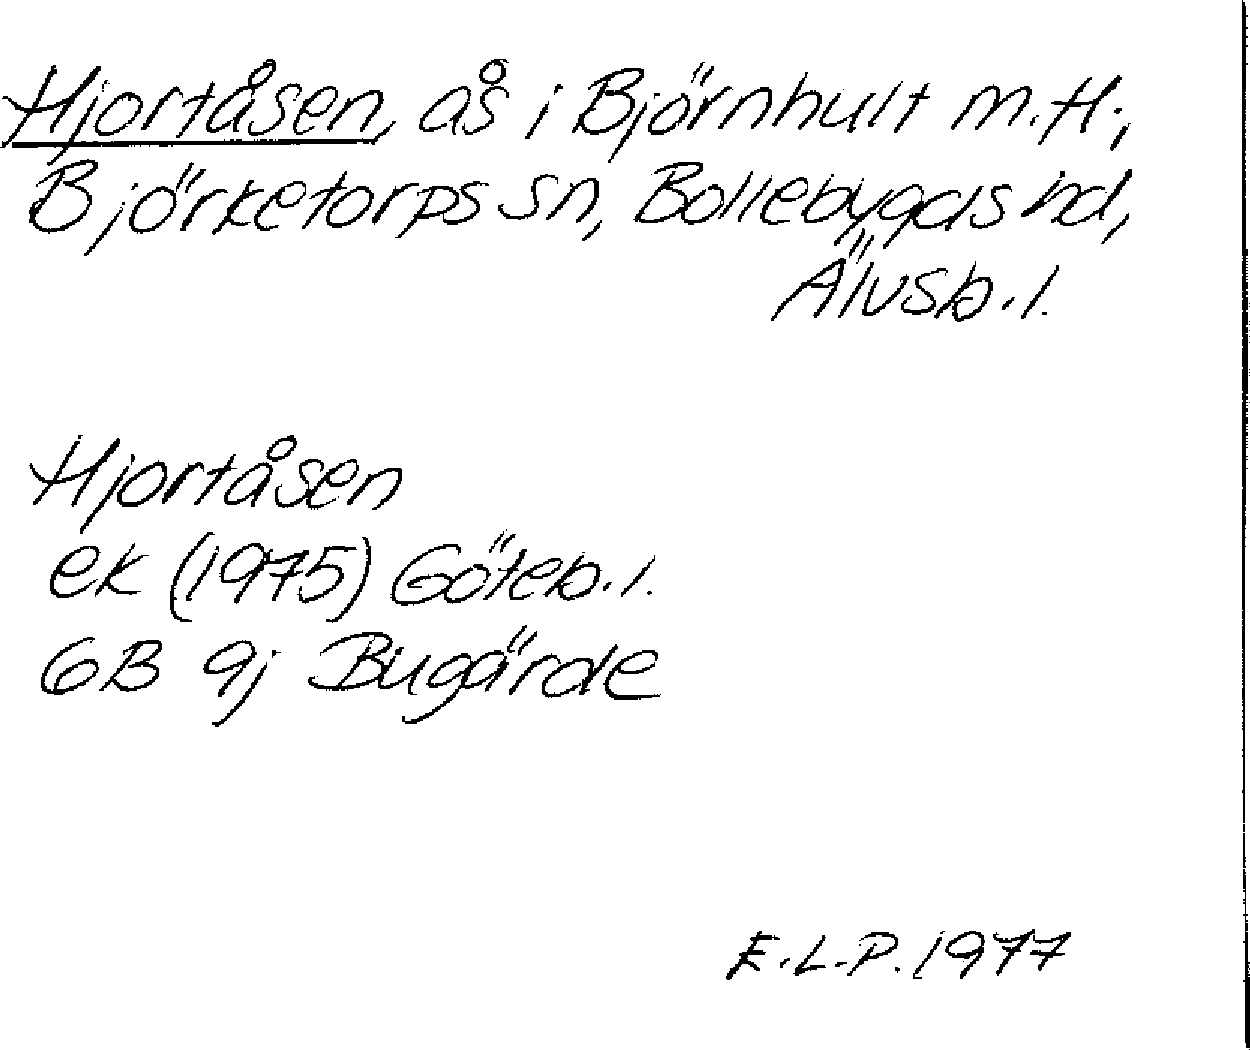 Hjortåsen, ås i Björnhult m.fl.,
Björketorps sn, Bollebygds hd,
Älvsb. l.
Hjortåsen
ek (1975) Göteb. l.
6B 9j Bugärde
E.L.P. 1977